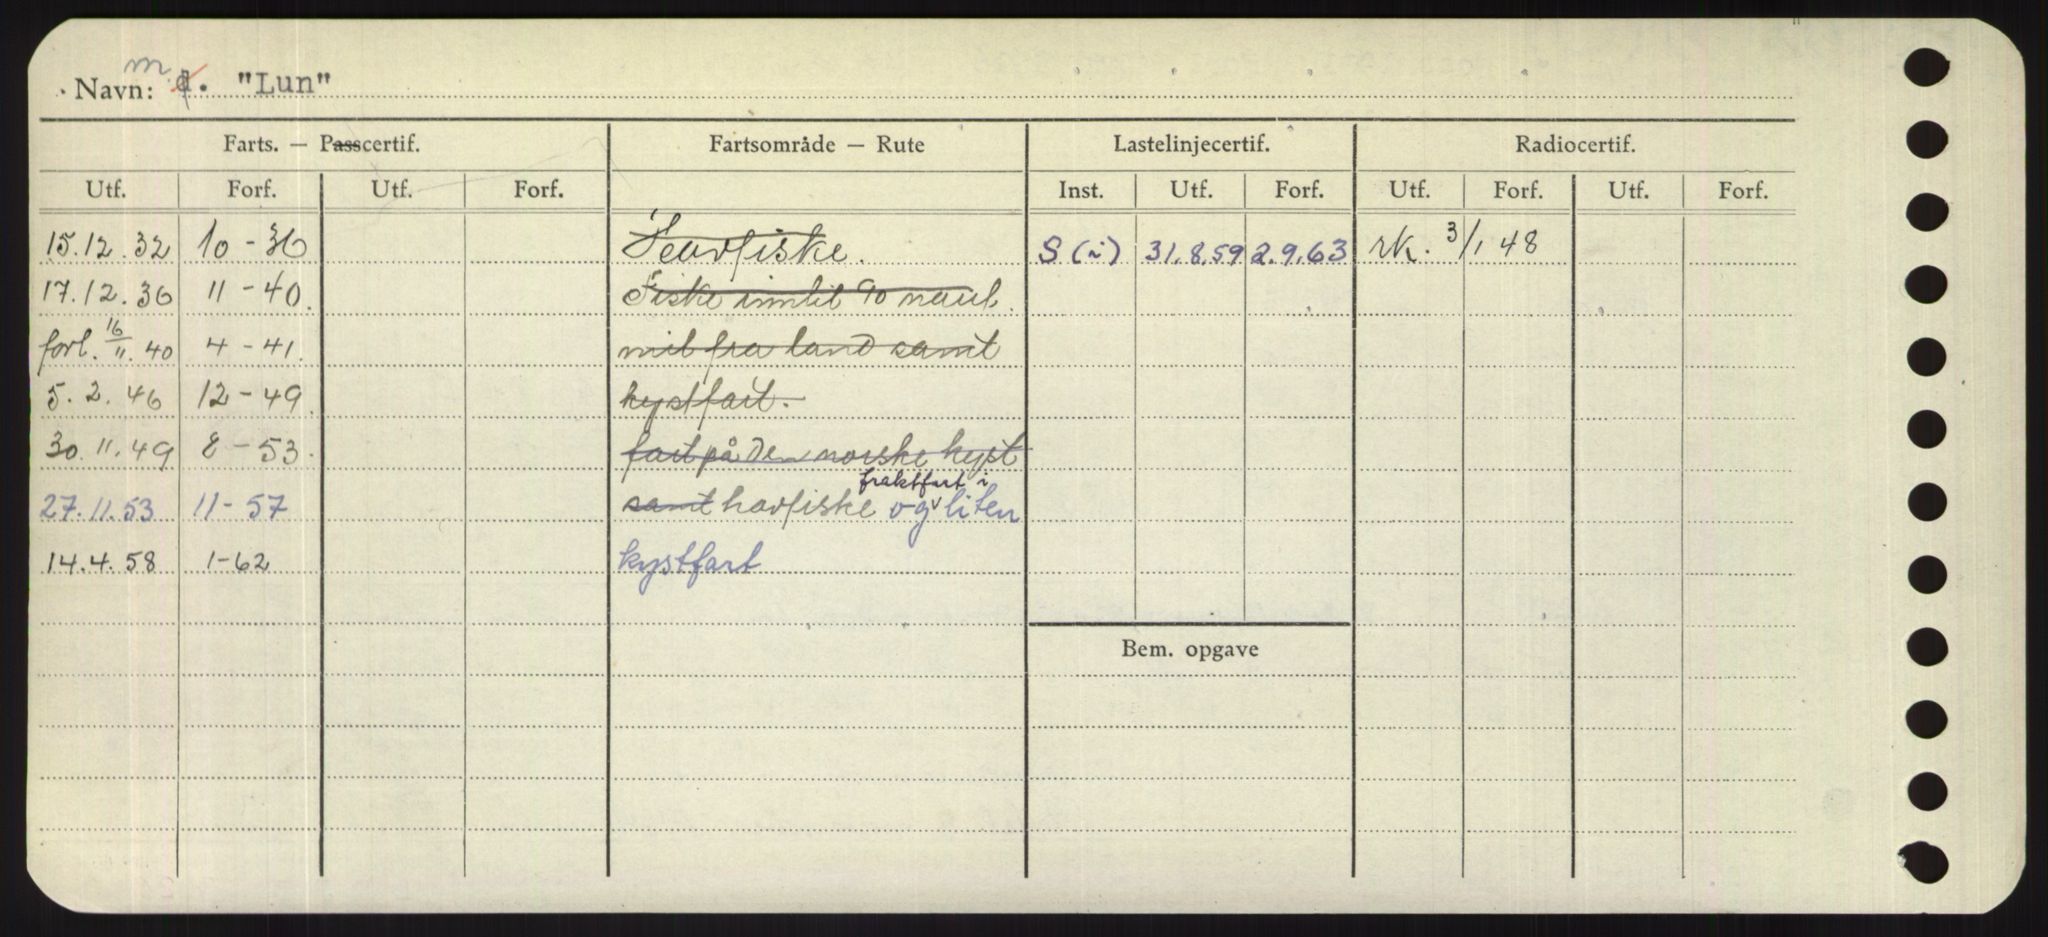 Navn: m. d. "Lun"
Farts. — Passcertif. Fartsområde — Rute Lastelinjecertif. Radiocertif.
Utf. Forf. Utf. Forf. Inst. Utf. Forf. Utf. Forf. Utf. Forf.
15.12.32 10-36 Havfiske. S (i) 31.8.59 2.9.63 rk. 3/1 48
17.12.36 11-40. Fiske inntil 90 naut.
forl. 16/11.40 4-41. mil fra land samt
5.2.46 12-49. kystfart.
30.11.49 8-53. fart på den norske kyst
fraktfart i
27.11.53 11-57 samt havfiske og v liten
14.4.58 1-62 kystfart
Bem. opgave